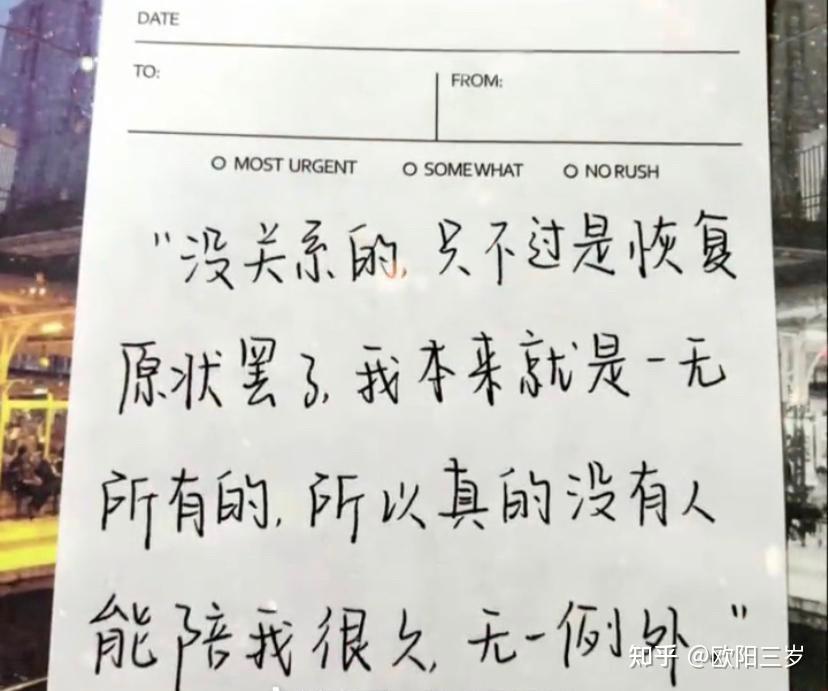 DATE
TO:
FROM:
MOST URGENT SOMEWHAT NO RUSH
“没关系的,只不过是恢复
原状罢了,我本来就是一无
所有的,所以真的没有人
能陪我很久,无一例外.”
知乎 @欧阳三岁